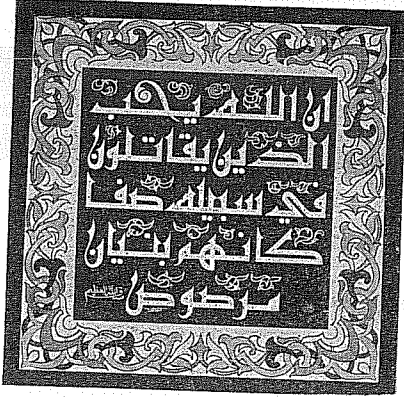 ان الله يحب
الذين يقاتلون
في سبيله صفا
كانهم بنيان
مرصوص